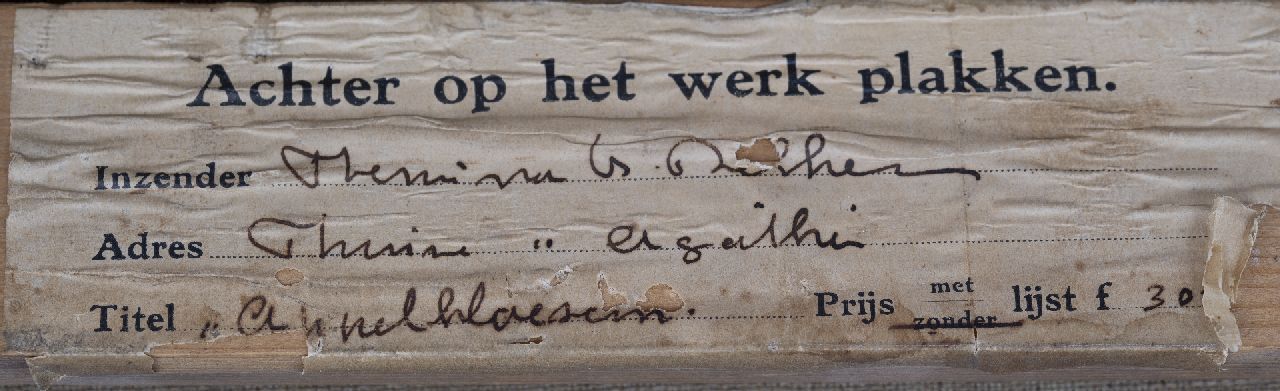 Achter op het werk plakken.
Inzender Themina v.
Adres " Agathi
Titel „Appelbloesem.
Prijs met zonder lijst f 30